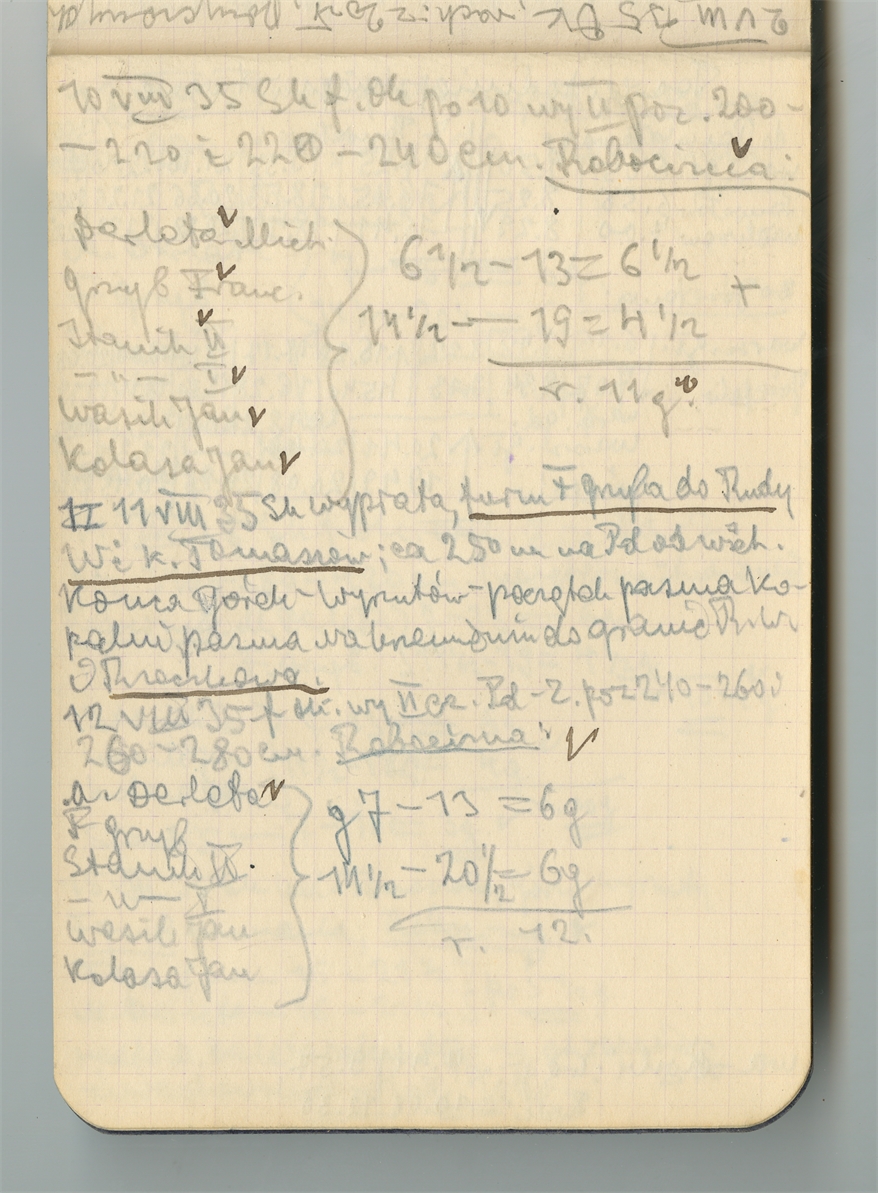 2 VIII 35
10 VIII 35 Sk f. ok po 10 wy II poz. 200-
-220 i 220-240 cm. Robocizna:
Derleta Mich.
6 1/2 - 13 = 6 1/2
Grzyb Franc.
14 1/2 - 19 = 4 1/2 +
Stanik II
- " - I
r. 11 g.
Wasik Jan
Kolasa Jan
II 11 VIII 35 Sk wypłata, F Gryba do Rudy
W i k. Tomaszów; ca 250 m na Pd od wsch.
Końca Górek-Wyrzutów-początek pasma ko-
palni pasma na do granic R. W
12 VIII 35 f ok. wy II cz. Pd-Z. poz 240-260 i
260-280 cm. Robocizna:
Derleta
g 7 - 13 = 6 g
F Grzyb
Stanik II
14 1/2 - 20 1/2 = 6 g
- " - I
Wasik Jan
r. 12.
Kolasa Jan